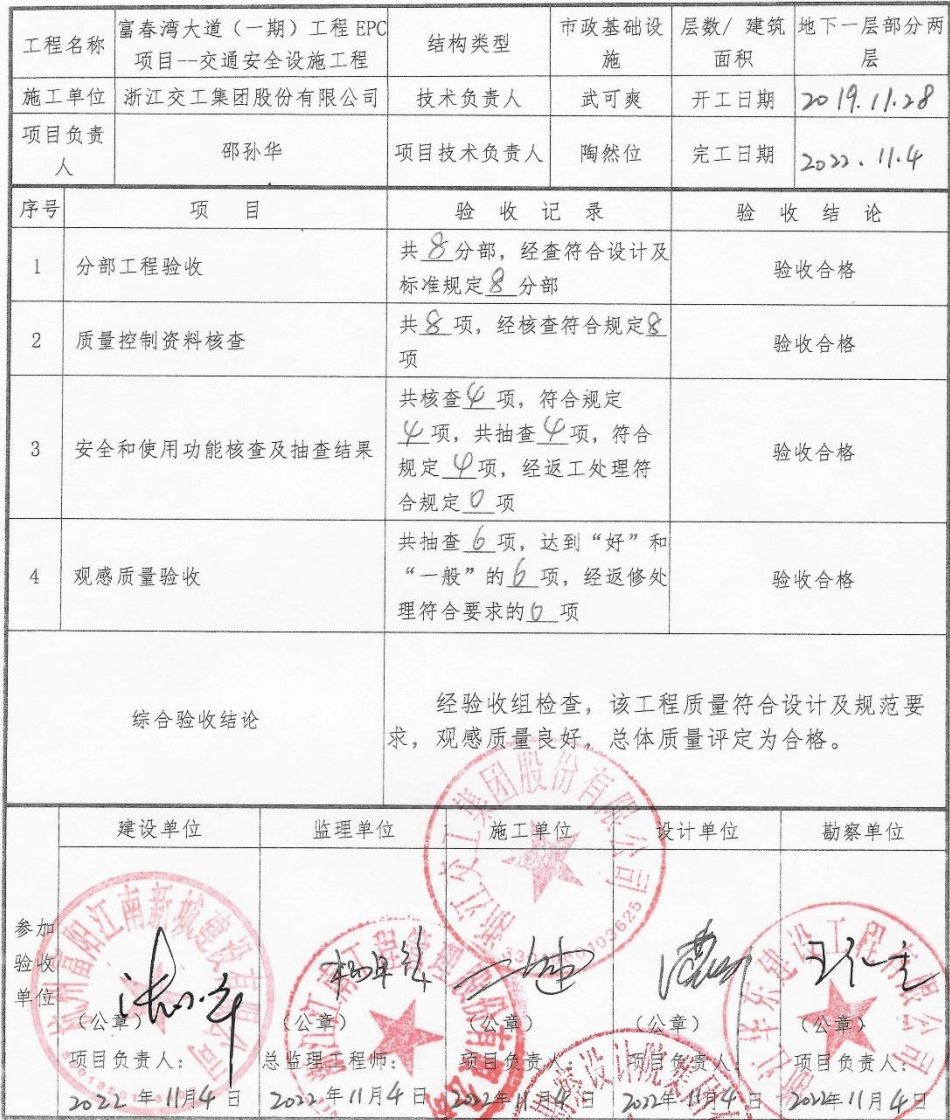 工程名称 富春湾大道（一期）工程 EPC 项目--交通安全设施工程 结构类型 市政基础设施 层数/ 建筑面积 地下一层部分两层
施工单位 浙江交工集团股份有限公司 技术负责人 武可爽 开工日期 2019.11.28
项目负责人 邵孙华 项目技术负责人 陶然位 完工日期 2022.11.4
序号 项 目 验 收 记 录 验 收 结 论
1 分部工程验收
共 8 分部，经查符合设计及
标准规定 8 分部
验收合格
2 质量控制资料核查
共 8 项，经核查符合规定 8
项
验收合格
3 安全和使用功能核查及抽查结果
共核查 4 项，符合规定
4 项，共抽查 4 项，符合
规定 4 项，经返工处理符
合规定 0 项
验收合格
4 观感质量验收
共抽查 6 项，达到“好”和
“一般”的 6 项，经返修处
理符合要求的 0 项
验收合格
综合验收结论
经验收组检查，该工程质量符合设计及规范要
求，观感质量良好，总体质量评定为合格。
参加
验收
单位
建设单位 监理单位 施工单位 设计单位 勘察单位
（公章） （公章） （公章） （公章） （公章）
项目负责人： 总监理工程师： 项目负责人： 项目负责人： 项目负责人：
2022 年 11月4 日 2022 年 11月4 日 2022年11月4 日 2022年11月4 日 2022年11月4日
浙江交工集团股份有限公司